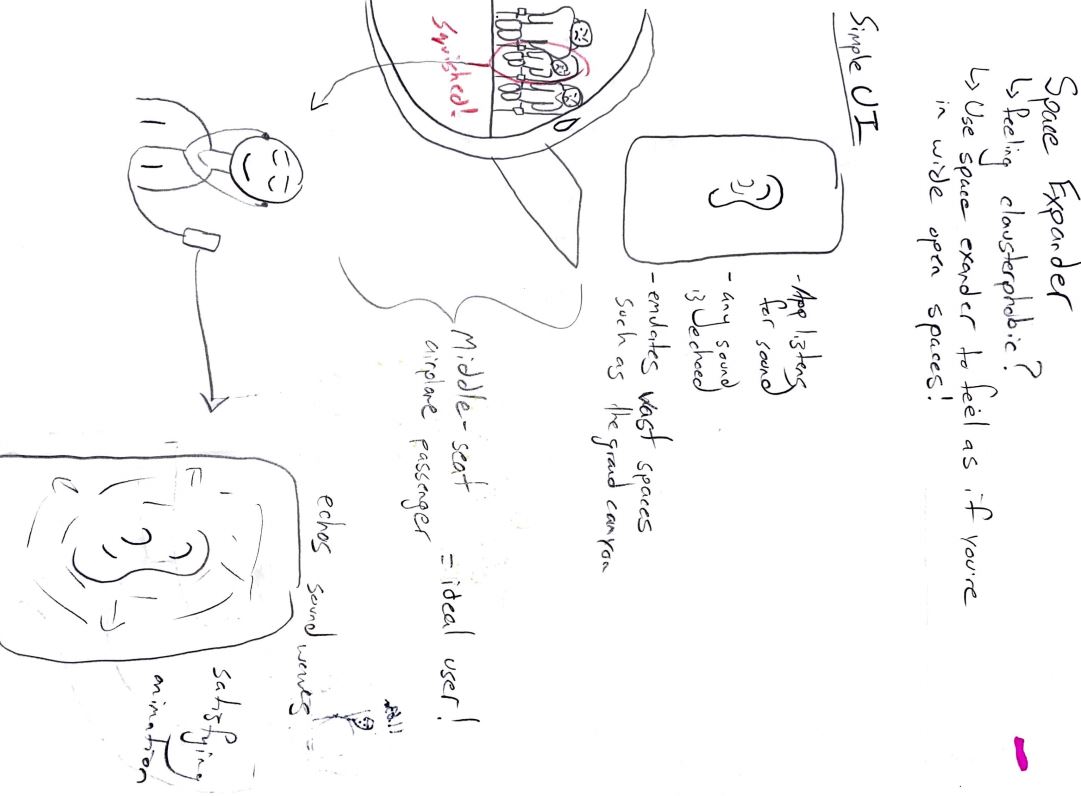 Space Expander
↳ feeling clausterphobic?
↳ Use space exander to feel as if you're
in wide open spaces!
Simple UI
- App listens
for sound
- any sound
is echoed
- emulates vast spaces
such as the grand canyon
Squished!
Middle-seat
airplane passenger
= ideal user!
echos sound waves
satisfying
animation